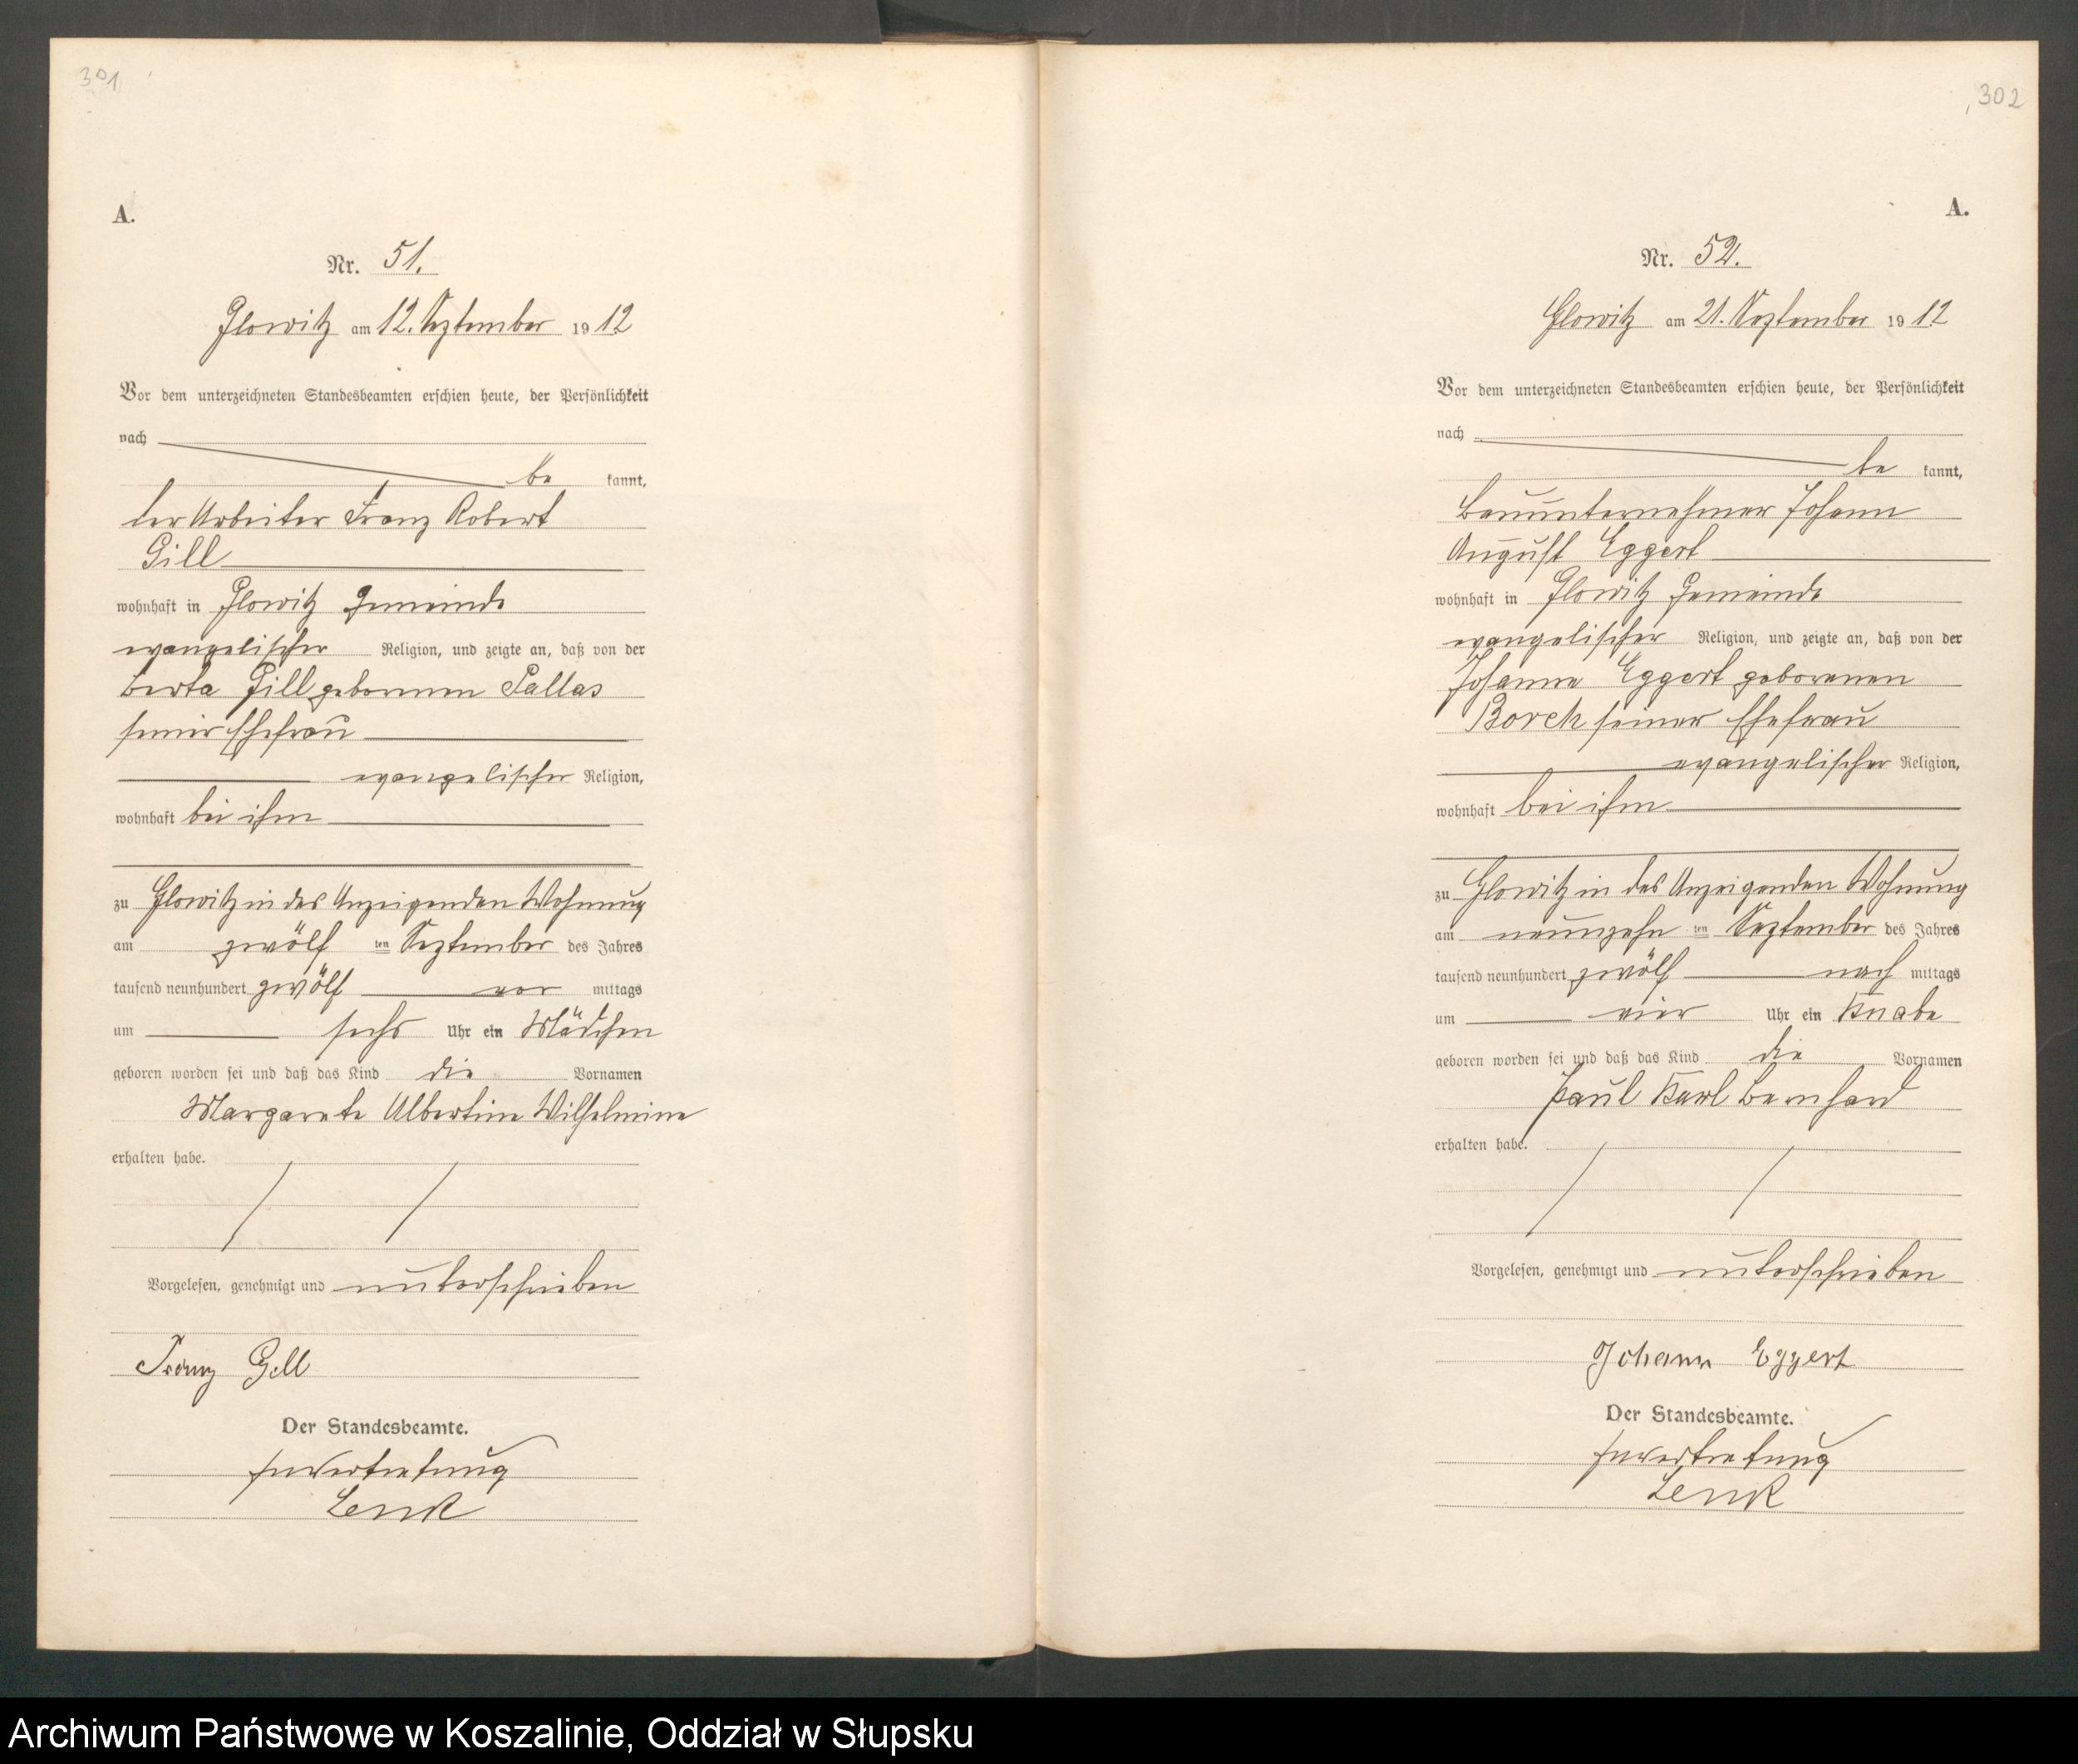 301
A.
Nr. 51.
Glowitz am 12. September 1912
Vor dem unterzeichneten Standesbeamten erschien heute, der Persönlichkeit
nach
be kannt,
der Arbeiter Franz Robert
Gill
wohnhaft in Glowitz Gemeinde
evangelischer Religion, und zeigte an, daß von der
Berta Gill geborenen Pallas
seiner Ehefrau
evangelischer Religion,
wohnhaft bei ihm
zu Glowitz in des Anzeigenden Wohnung
am zwölf ten September des Jahres
tausend neunhundert zwölf vor mittags
um sechs Uhr ein Mädchen
geboren worden sei und daß das Kind die Vornamen
Margarete Albertine Wilhelmine
erhalten habe.
Vorgelesen, genehmigt und unterschrieben
Franz Gill
Der Standesbeamte.
In Vertretung
Lenk
302
A.
Nr. 52.
Glowitz am 21. September 1912
Vor dem unterzeichneten Standesbeamten erschien heute, der Persönlichkeit
nach
be kannt,
Bauunternehmer Johann
August Eggert
wohnhaft in Glowitz Gemeinde
evangelischer Religion, und zeigte an, daß von der
Johanne Eggert geborenen
Borck seiner Ehefrau
evangelischer Religion,
wohnhaft bei ihm
zu Glowitz in des Anzeigenden Wohnung
am neunzehn ten September des Jahres
tausend neunhundert zwölf nach mittags
um vier Uhr ein Knabe
geboren worden sei und daß das Kind die Vornamen
Paul Karl Bernhard
erhalten habe.
Vorgelesen, genehmigt und unterschrieben
Johann Eggert
Der Standesbeamte.
In Vertretung
Lenk
Archiwum Państwowe w Koszalinie, Oddział w Słupsku